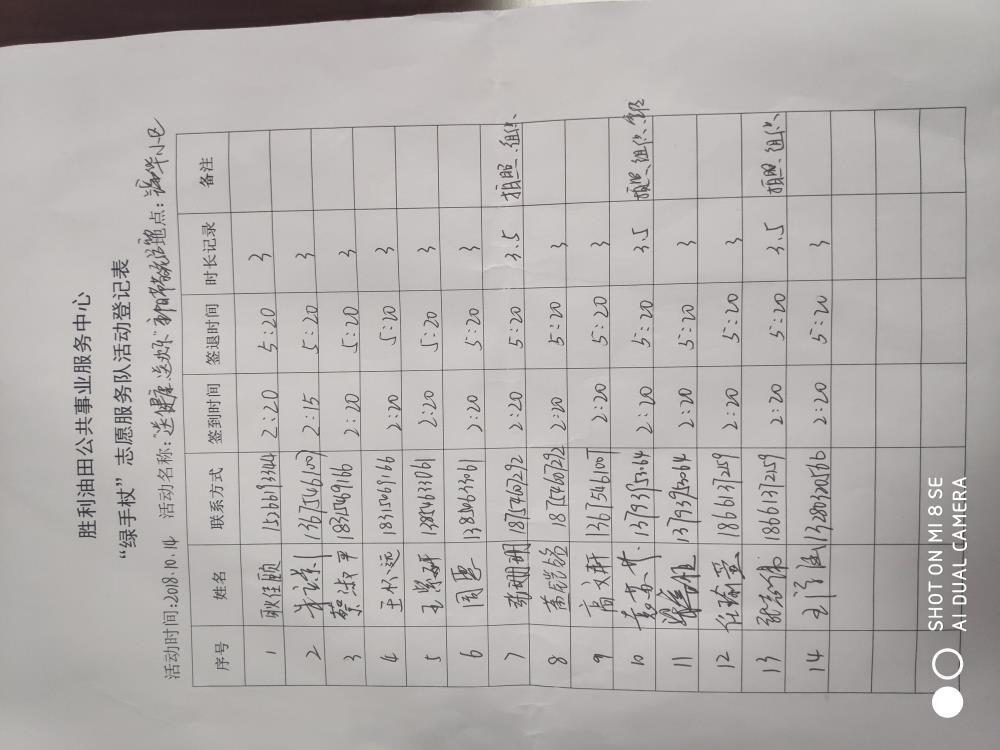 胜利油田公共事业服务中心
“绿手杖”志愿服务队活动登记表
活动时间:2018.10.14 活动名称:“送健康 送欢乐” 地点: 小区
序号 姓名 联系方式 签到时间 签退时间 时长记录 备注
1 耿佳颐 15266193344 2:20 5:20 3
2 13675461007 2:15 5:20 3
3 蔡淑平 18315469166 2:20 5:20 3
4 王怀远 18315469166 2:20 5:20 3
5 王紫研 13854633061 2:20 5:20 3
6 周 13854633061 2:20 5:20 3
7 张珊珊 18754607292 2:20 5:20 3.5 拍照、组织
8 18754607292 2:20 5:20 3
9 高文轩 13675461007 2:20 5:20 3
10 13793953064 2:20 5:20 3.5 拍照、组织、
11 13793953064 2:20 5:20 3
12 任瑜 18661372159 2:20 5:20 3
13 张志伟 18661372159 2:20 5:20 3.5 拍照、组织
14 13280320566 2:20 5:20 3
SHOT ON MI 8 SE
AI DUAL CAMERA